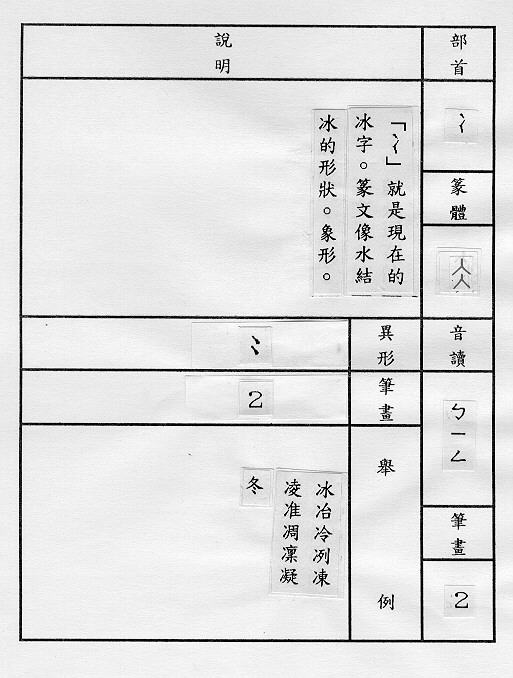 部首
冫
篆體
音讀
ㄅㄧㄥ
筆畫
2
說明
「冫」就是現在的
冰字。篆文像水結
冰的形狀。象形。
異形
筆畫
2
舉例
冰冶冷冽凍
凌准凋凜凝
冬